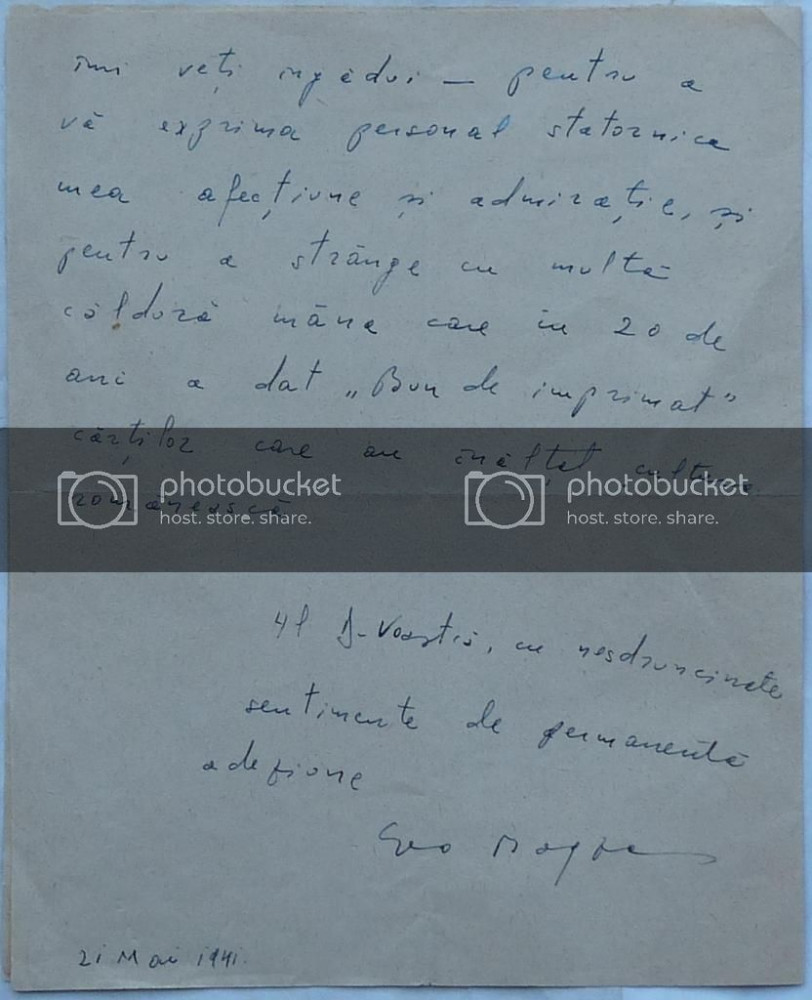 îmi veți îngădui — pentru a
vă exprima personal statornica
mea afecțiune și admirație, și
pentru a strânge cu multă
căldură mâna care în 20 de
ani a dat „Bun de imprimat”
cărților care au înălțat cultura
românească
photobucket photobucket
host. store. share. host. store. share.
Al D-Voastră, cu nesdruncinate
sentimente de permanentă
adeziune
Geo
21 Mai 1941.